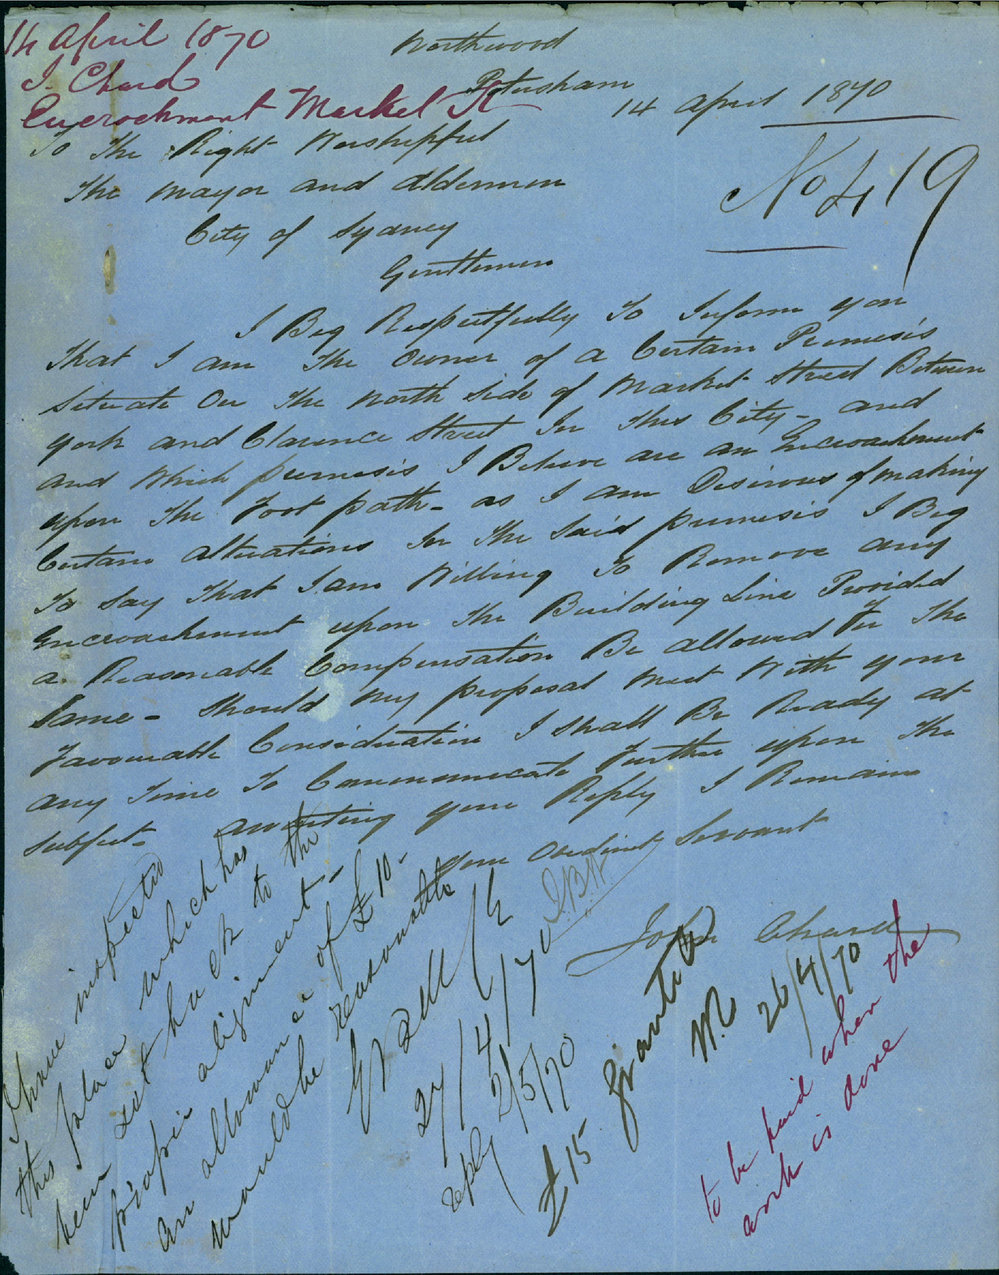 14 April 1870
J. Chard
Encroachment Market St
Northwood
Petersham
14 April 1870
No 419
To The Right Worshipful
The Mayor and Aldermen
City of Sydney
Gentlemen
I Beg Respectfully To Inform you
That I am The Owner of a Certain Premesis
Situate On The North Side of Market Street Between
York and Clarence Street In This City - and
and Which premesis I Believe are an Encroachment
upon The Foot path - as I am Desirous of Making
Certain alterations In The Said premesis I Beg
To Say That I am Willing To Remove any
Encroachment upon The Building Line Provided
a Reasonable Compensation Be allowed For The
Same - Should My proposal Meet With your
Favourable Consideration I shall Be Ready at
any Time To Communicate Further upon The
Subject - awaiting your Reply I Remain
your Obedient Servant
John Chard
I have inspected
this place which has
been set back to the
proper alignment -
an allowance of £10 -
would be reasonable
27/4/70
reply 2/5/70
£15 granted
26/4/70
to be paid when the
work is done